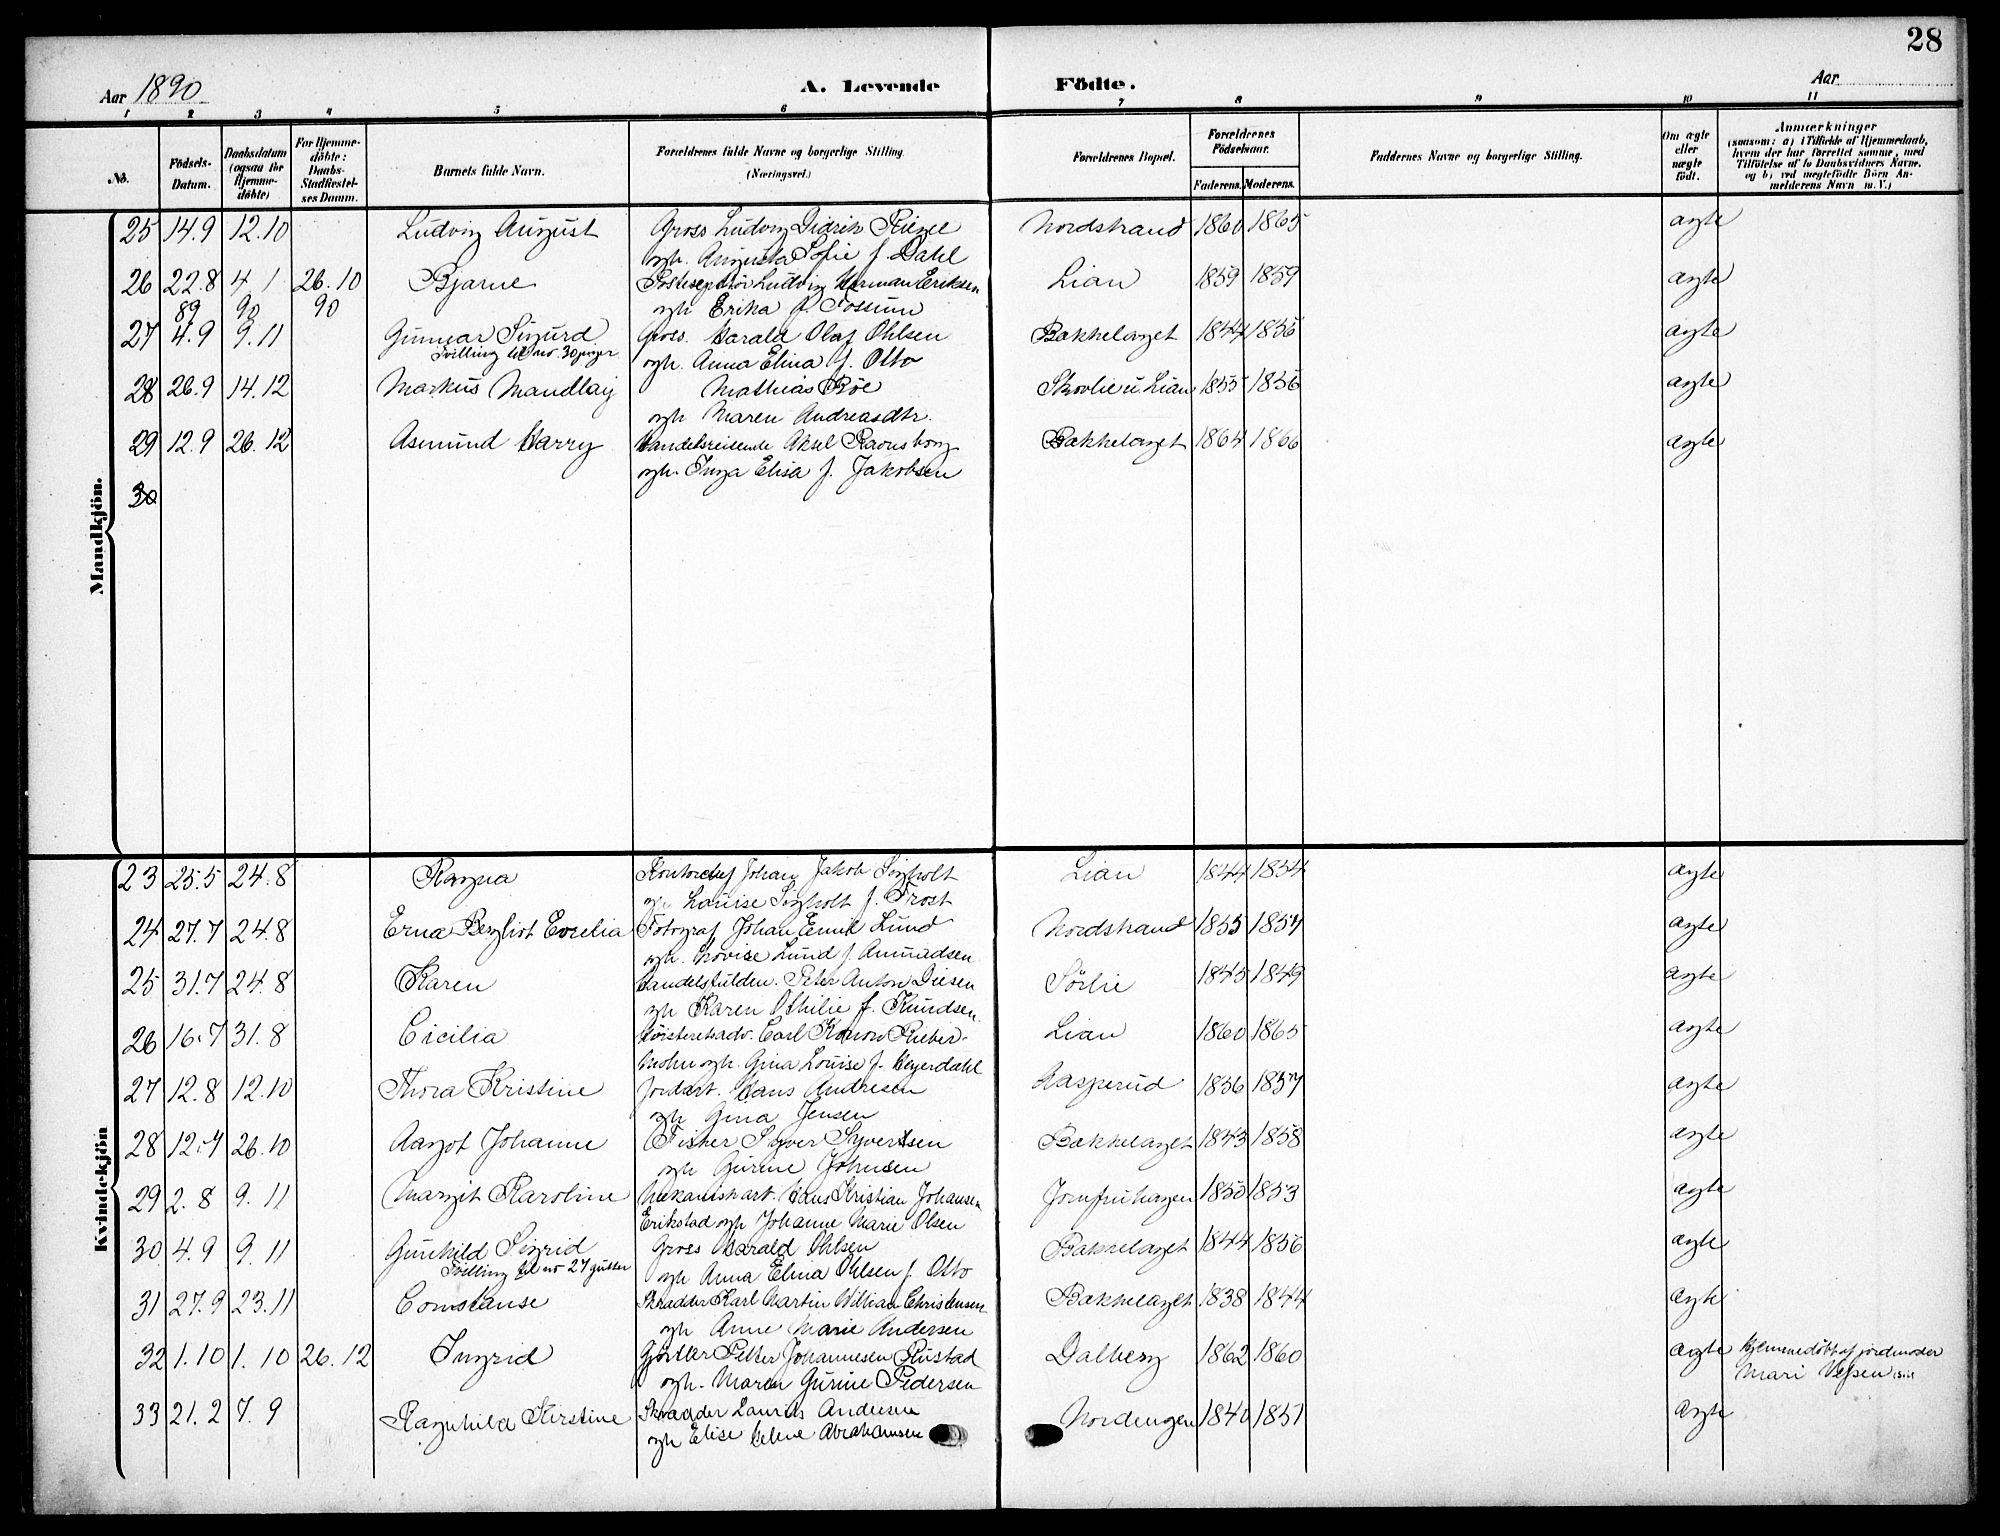 28
Aar 1890
A. Levende Födte.
Aar
1 2 3 4 5 6 7 8 9 10 11
No.
Födsels-Datum.
Daabsdatum (ogsaa for Hjemme-döbte)
For Hjemme-döbte: Daabs-Stadfæstel-ses Datum.
Barnets fulde Navn.
Forældrenes fulde Navne og borgerlige Stilling. (Næringsvei.)
Forældrenes Bopæl.
Forældrenes Födselsaar.
Faderens. Moderens.
Faddernes Navne og borgerlige Stilling.
Om ægte eller uægte födt.
Anmærkninger
(saasom: a) i Tilfælde af Hjemmedaab, hvem der har forrettet samme, med Tilföielse af to Daabsvidners Navne, og b) ved uægtefödte Börn An-melderens Navn m. V.)
Mandkjön.
25 14.9 12.10 Ludvig August Gross Ludvig Didrik Nordstrand 1860 1865 ægte
ogh. Augusta Sofie f Dahl
26 22.8 4 1 26.10 Bjarne Ludvig Herman Eriksen Lian 1859 1859 ægte
89 90 90 ogh Erika f. Fossum
27 4.9 9.11 Gunnar Sigurd Gross. Harald Olaf Ohlsen Bækkelaget 1844 1856 ægte
Tvilling til no. 30 piger ogh. Anna Elina f. Otto
28 26.9 14.12 Markus Mandlaij Mathias Röe Skovlie u Lian 1855 1856 ægte
ogh Maren Andreasdtr.
29 12.9 26.12 Asmund Harry Handelsreisende Aksel Ravnsborg Bækkelaget 1864 1866 ægte
ogh. Inga Elisa f. Jakobsen
30
Kvindekjön
23 25.5 24.8 Ragna Kontorchef Johan Jakob Sigholt Lian 1844 1854 ægte
ogh Louise Sigholt f. Frost
24 27.7 24.8 Erna Bergliot Evelia Fotograf Johan Emil Lund Nordstrand 1855 1857 ægte
ogh. Lovise Lund f. Amundsen
25 31.7 24.8 Karen Handelsfuldm. Peter Anton Diesen Sörlie 1845 1849 ægte
ogh Karen Othilie f. Knudsen
26 16.7 31.8 Cicilia Höisteretsadv. Carl Konow Rieber- Lian 1860 1865 ægte
Mohn ogh. Gina Louise f. Heyerdahl
27 12.8 12.10 Thora Kristine Jordarb. Hans Andresen Aasperud 1856 1857 ægte
ogh Gina Jensen
28 12.7 26.10 Aagot Johanne Fisker Syver Syvertsen Bækkelaget 1843 1858 ægte
ogh Gurine Johnsen
29 2.8 9.11 Margit Karoline Mekanisk arb. Hans Kristian Johansen Jomfruhagen 1850 1853 ægte
Erikstad ogh Johanne Marie Olsen
30 4.9 9.11 Gunhild Sigrid Gross Harald Ohlsen Bækkelaget 1844 1856 ægte
Tvilling til no 27 gutter ogh Anna Elina Ohlsen f. Otto
31 27.9 23.11 Constanse Skrædder Karl Martin William Christensen Bækkelaget 1838 1844 ægte
ogh Anne Marie Andersen
32 1.10 1.10 26.12 Ingrid Gjörtler Petter Johannesen Rustad Dalberg 1862 1860 ægte Hjemmedöbt af jordmoder
ogh. Maren Gurine Pedersen Mari
33 21.2 7.9 Ragnhild Kirstine Skrædder Laurits Andersen Nordengen 1840 1851 ægte
ogh Elise Helene Abrahamsen